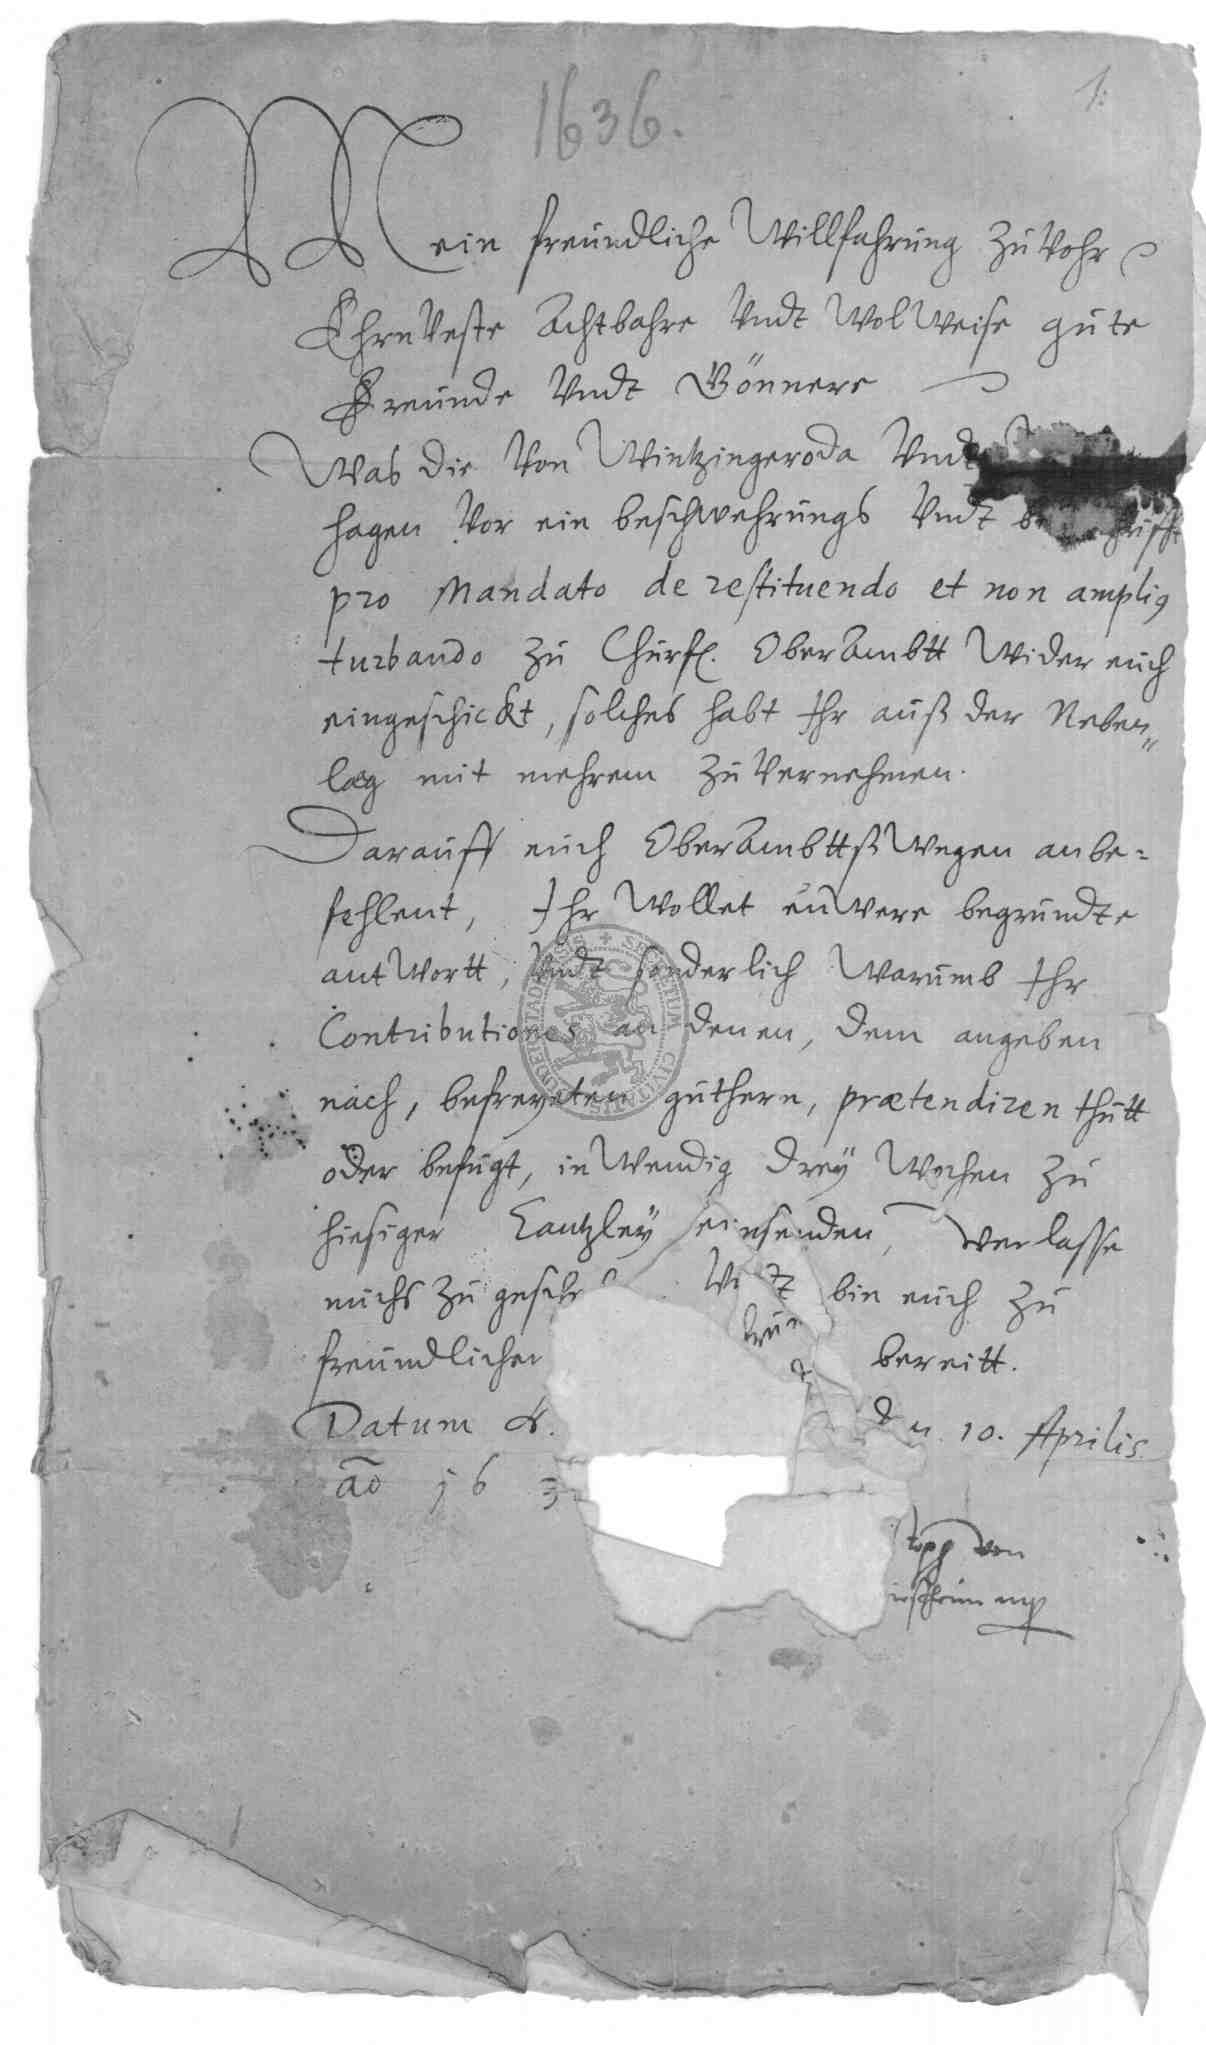 1636.
1.
Mein freundliche Willfahrung zuVohr
EhrnVeste Achtbahre Vndt WolWeise gute
Freunde Vndt Gönnere
Was die Von Wintzingeroda Vndt
hagen Vor ein beschwehrungs Vndt
pro Mandato de restituendo et non amplius
turbando zu Churfl. OberAmbtt Wider euch
eingeschickt, solches habt Ihr auß der Neben„
lag mit mehrem zuVernehmen.
Darauff euch OberAmbttß Wegen anbe=
fehlent, Ihr Wollet euwere begrundte
antWortt, Vndt sonderlich Warumb Ihr
Contributiones an denen, dem angeben
nach, befreyeten guthern, prætendiren thutt
oder befugt, inWendig drey Wochen zu
hiesiger Cantzley einsenden, Verlasse
michs zu Vndt bin euch zu
freundlicher bereitt.
Datum den 10. Aprilis
ao 163
von
mp
SECRETUM CIVITATIS DUDERSTADENSIS